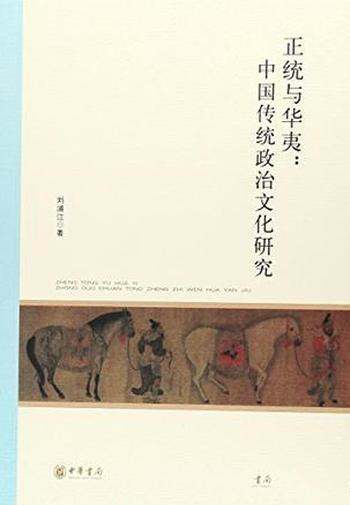 正统与华夷：
中国传统政治文化研究
刘浦江 著
ZHENG TONG YU HUA YI
ZHONG GUO CHUAN TONG ZHENG ZHI WEN HUA YAN JIU
中華書局
書局